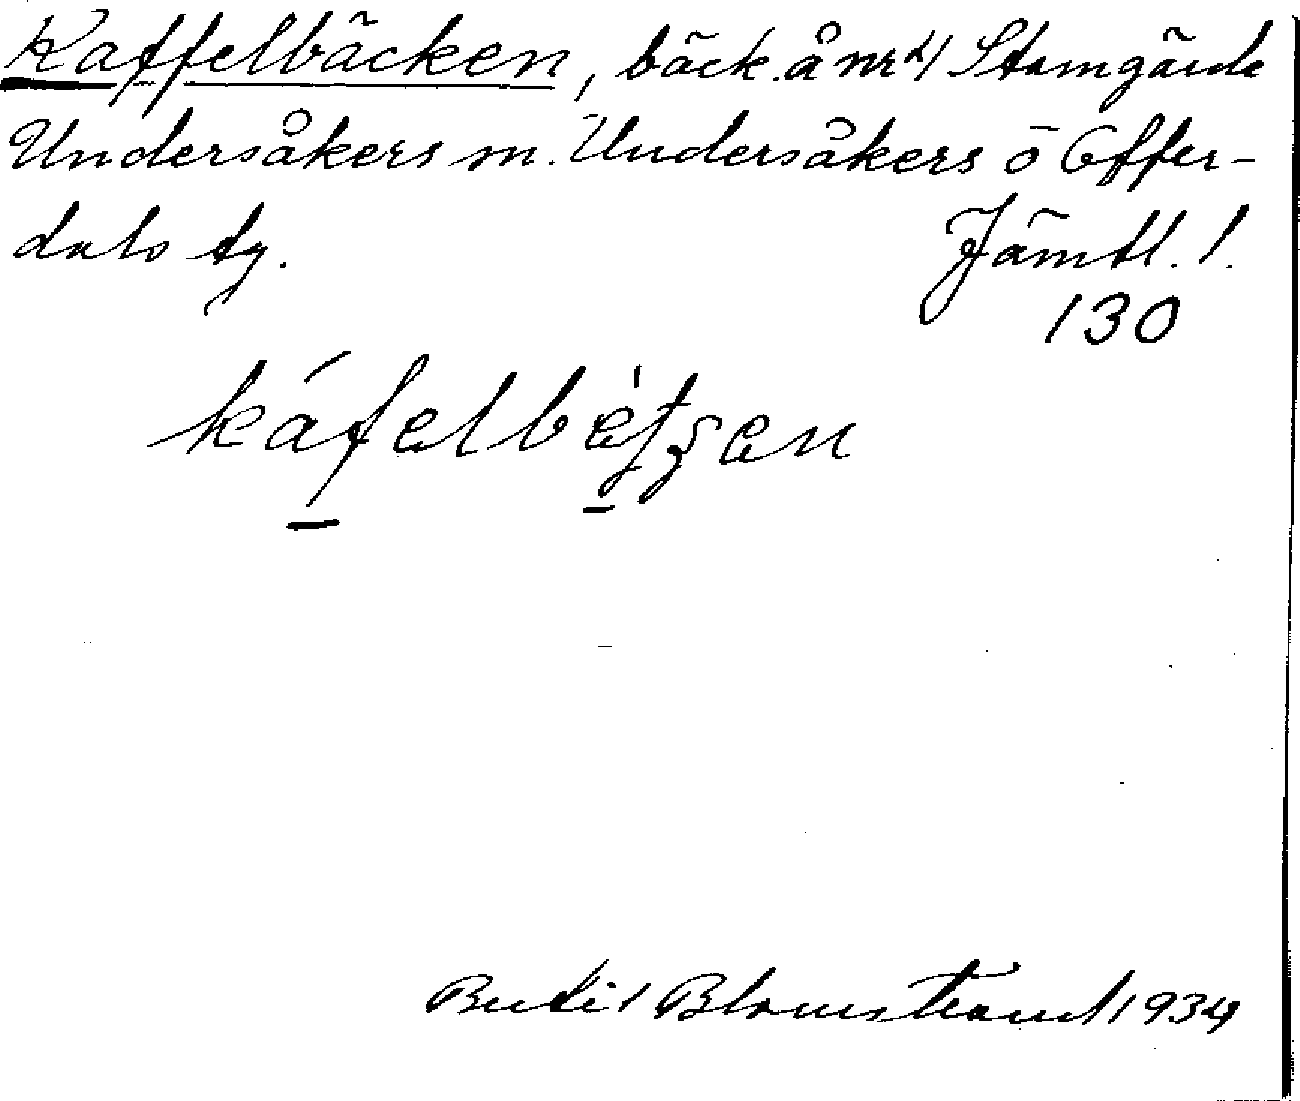 Kaffelbäcken, bäck å nr 4 Stamgärde
Undersåkers sn. Undersåkers o Offer-
dals tg.
Jämtl. l.
130
káfəlbètʂən
Bertil Blomstrand 1934